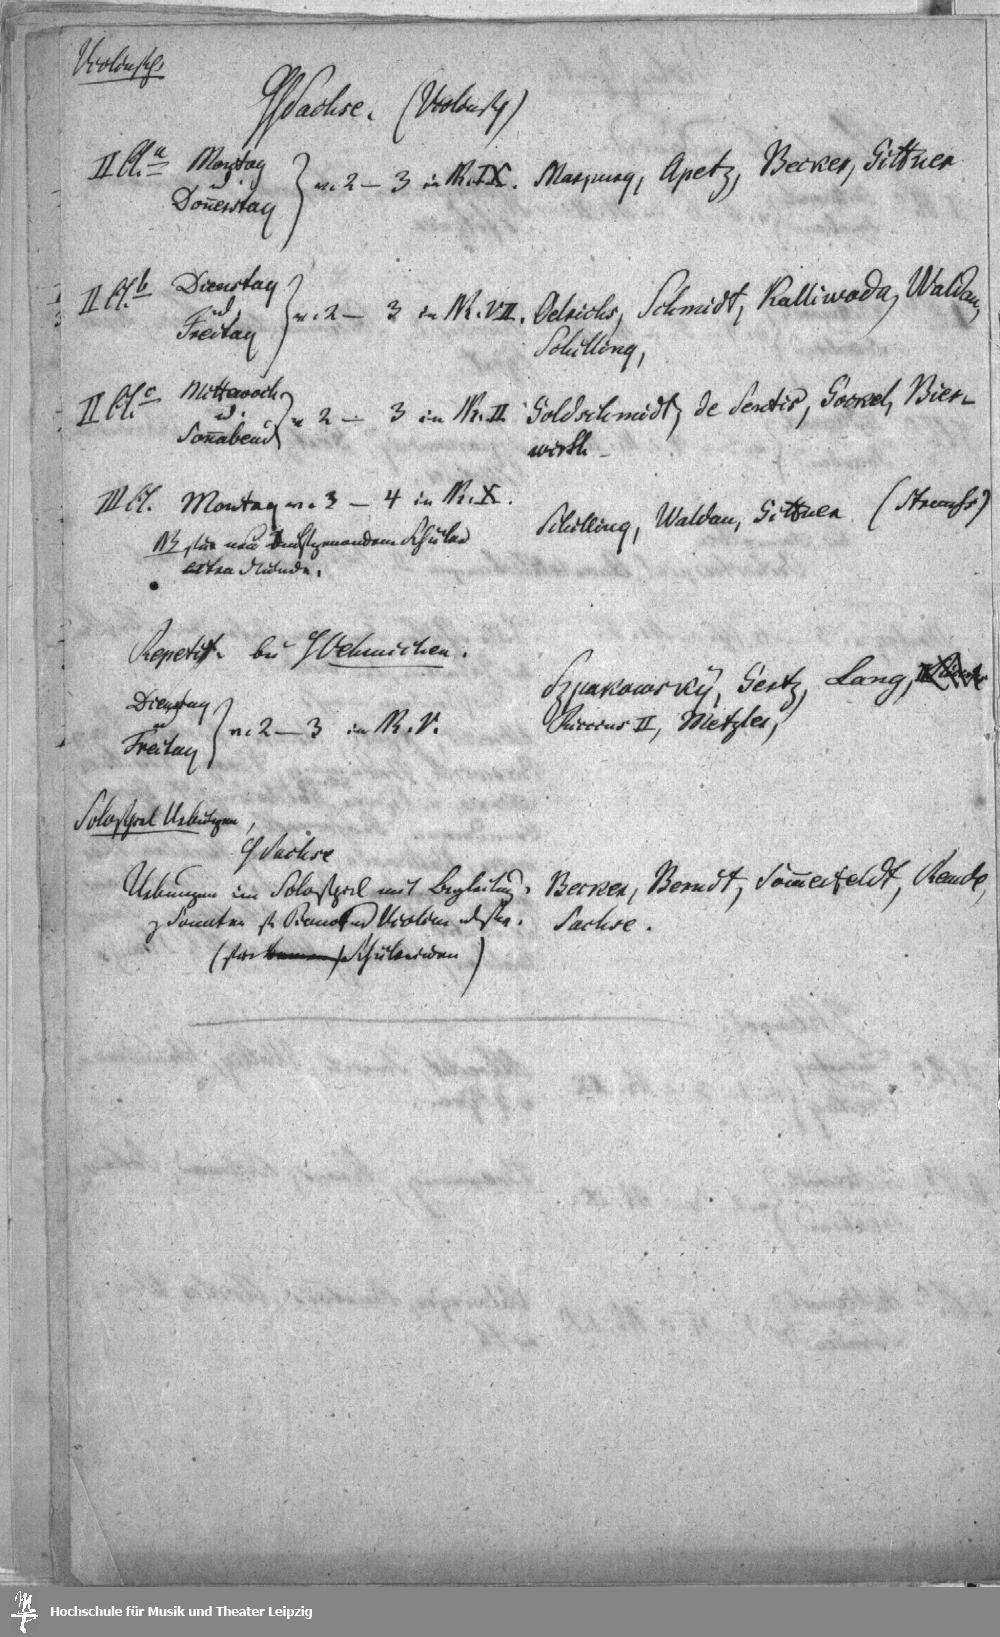 Violinsp.
H Sachse. (Violinsp)
II Cl. a Montag
u.
Donnerstag
v. 2 – 3 in N. IX. Marpurg, Apetz, Becker, Gittner
II Cl. b Dienstag
ud.
Freitag
v. 2 – 3 in N. VII. Oelrichs, Schmidt, Kalliwoda, Waldau,
Schilling,
II Cl. c Mittwoch
ud.
Sonnabend
v 2 – 3 in N. II Goldschmidt, de Sentis, Gockel, Bier-
wirth
III Cl. Montag v. 3 – 4 in N. X.
Schilling, Waldau, Gittner
NB für neu Schüler
extra Stunde.
Repetit. bei H Oehmichen.
Dienstag
u
Freitag
v. 2 – 3 in N. V.
Szpakowsky, Gertz, Lang,
Riccius II, Metzler,
Solospiel Uebungen,
H Sachse
Uebungen im Solospiel mit Begleitung, Becker, Berndt, Sommerfeldt, Rende,
Sonaten f Piano und Violine Sachse.
(für Schülerinnen)
Hochschule für Musik und Theater Leipzig